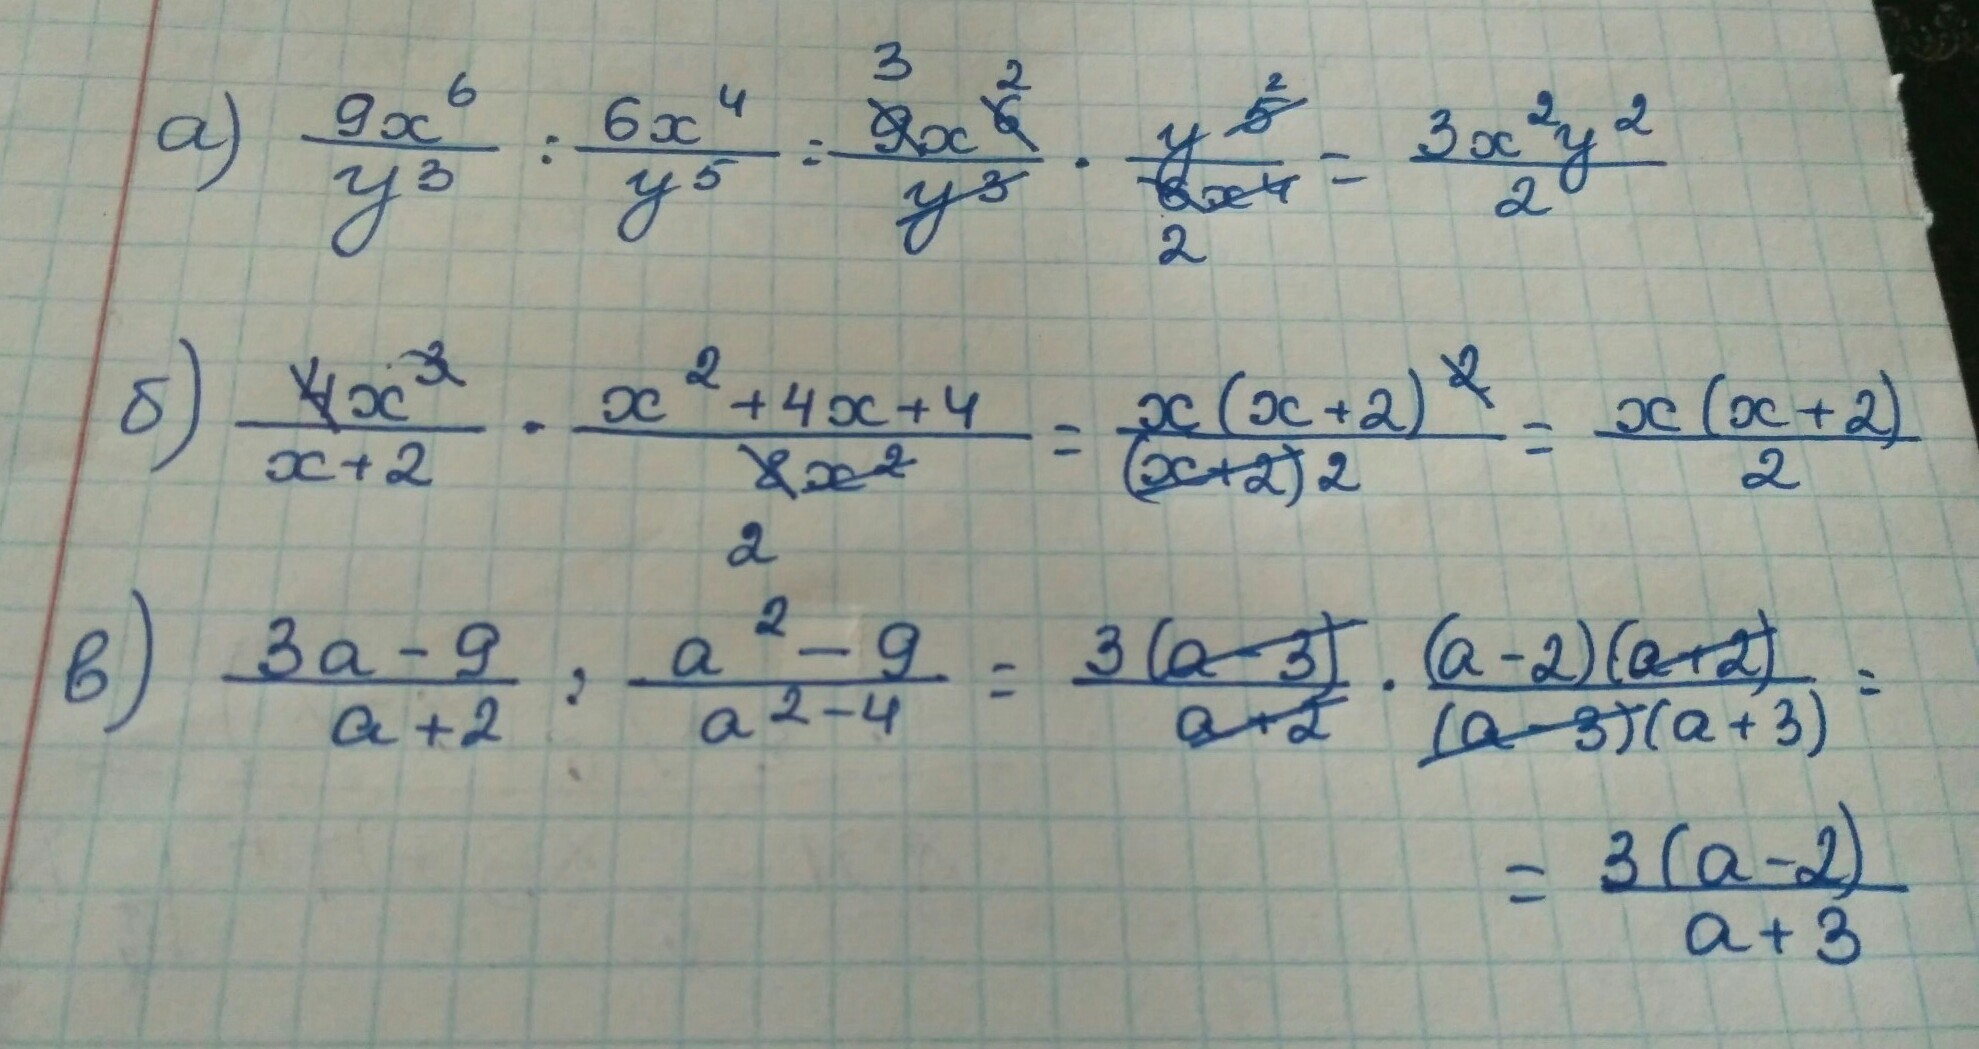 а) 9x^6/y^3 : 6x^4/y^5 = 9x^6/y^3 · y^5/6x^4 = 3x^2y^2/2
б) 4x^3/x+2 · x^2+4x+4/8x^2 = x(x+2)^2/(x+2)2 = x(x+2)/2
в) 3a-9/a+2 : a^2-9/a^2-4 = 3(a-3)/a+2 · (a-2)(a+2)/(a-3)(a+3) =
= 3(a-2)/a+3